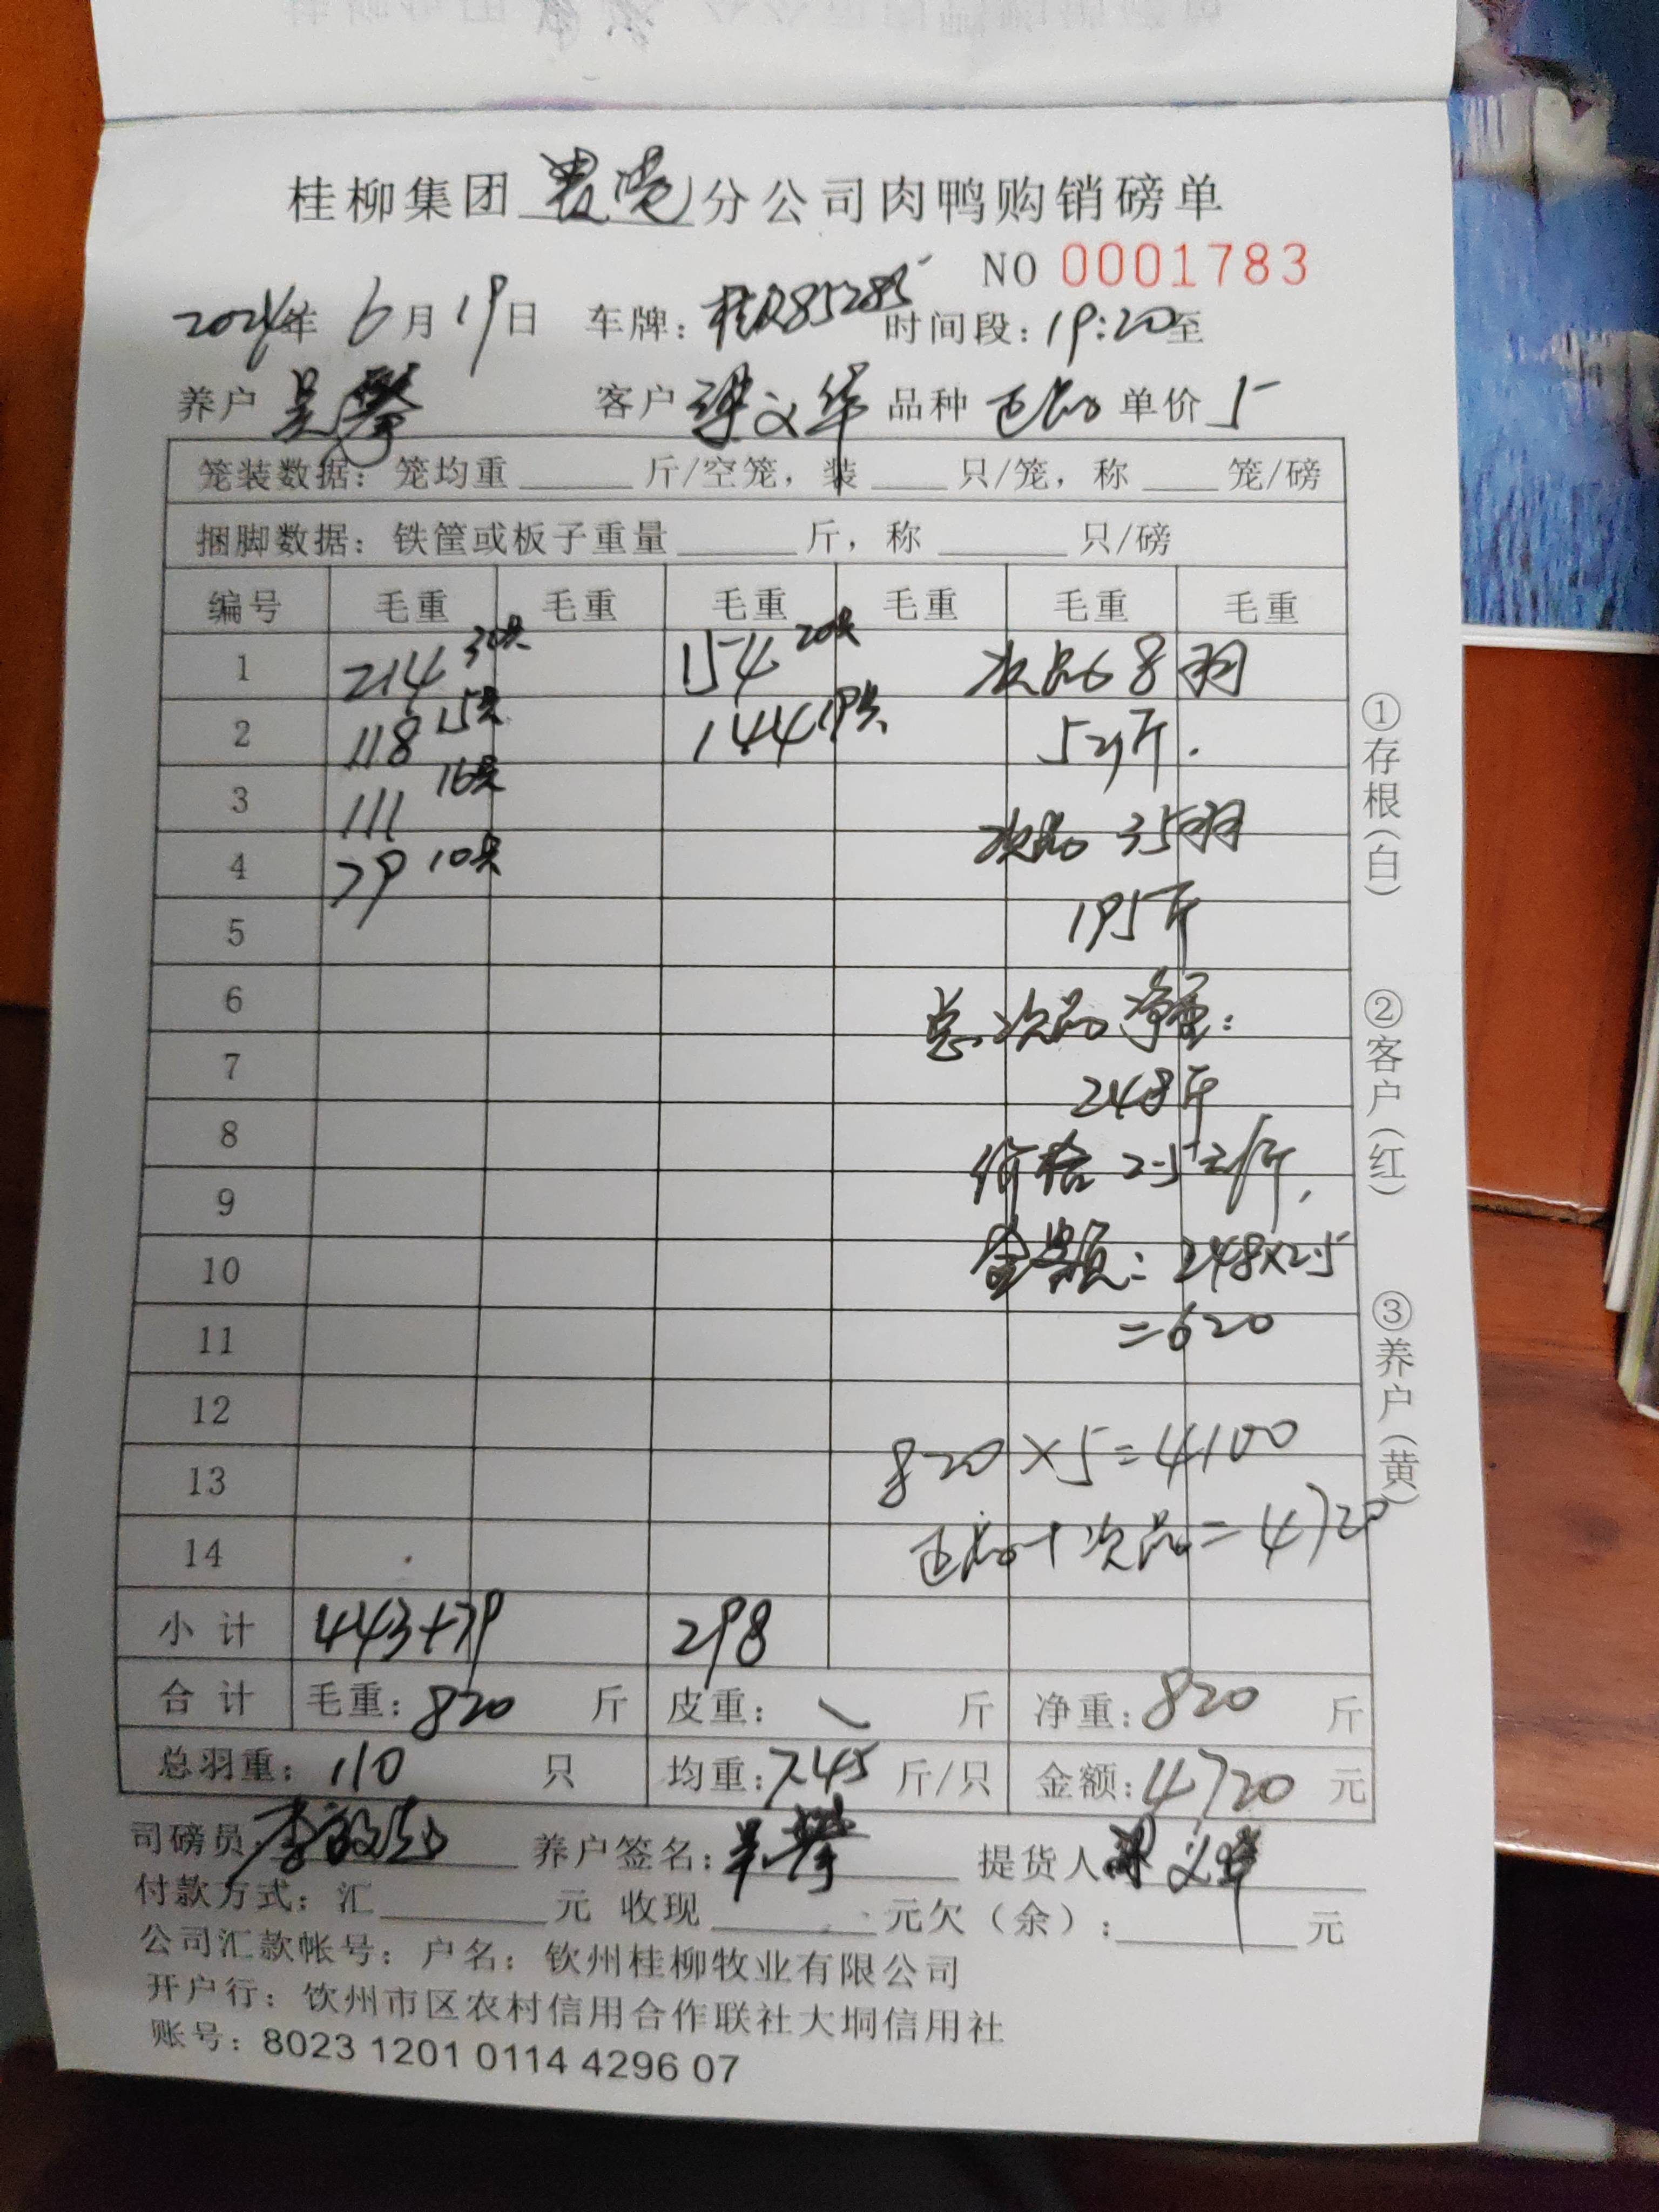 桂柳集团贵港分公司肉鸭购销磅单
NO 0001783
2024年 6月19日 车牌：桂R85285 时间段：19:20至
养户 吴 客户 梁文华 品种 正品 单价 5
笼装数据：笼均重 斤/空笼，装 只/笼，称 笼/磅
捆脚数据：铁筐或板子重量 斤，称 只/磅
编号 毛重 毛重 毛重 毛重 毛重 毛重
1 214 30只 154 20只 次品 8羽
2 118 15只 144 19只 斤.
3 111 16只 次品 35羽
4 79 10只
5 195斤
6 总次品净重：
7 248斤
8 价格 2.5元/斤,
9
10 金额：248×2.5
11 =620
12
13 820×5=4100
14 正品+次品=4720
小计 443+79 298
合计 毛重：820 斤 皮重： 斤 净重：820 斤
总羽重：110 只 均重：7.45 斤/只 金额：4720 元
司磅员：李 养户签名：吴 提货人 梁文华
付款方式：汇 元 收现 元欠（余）： 元
公司汇款帐号：户名：钦州桂柳牧业有限公司
开户行：钦州市区农村信用合作联社大垌信用社
账号：8023 1201 0114 4296 07
①存根（白）
②客户（红）
③养户（黄）